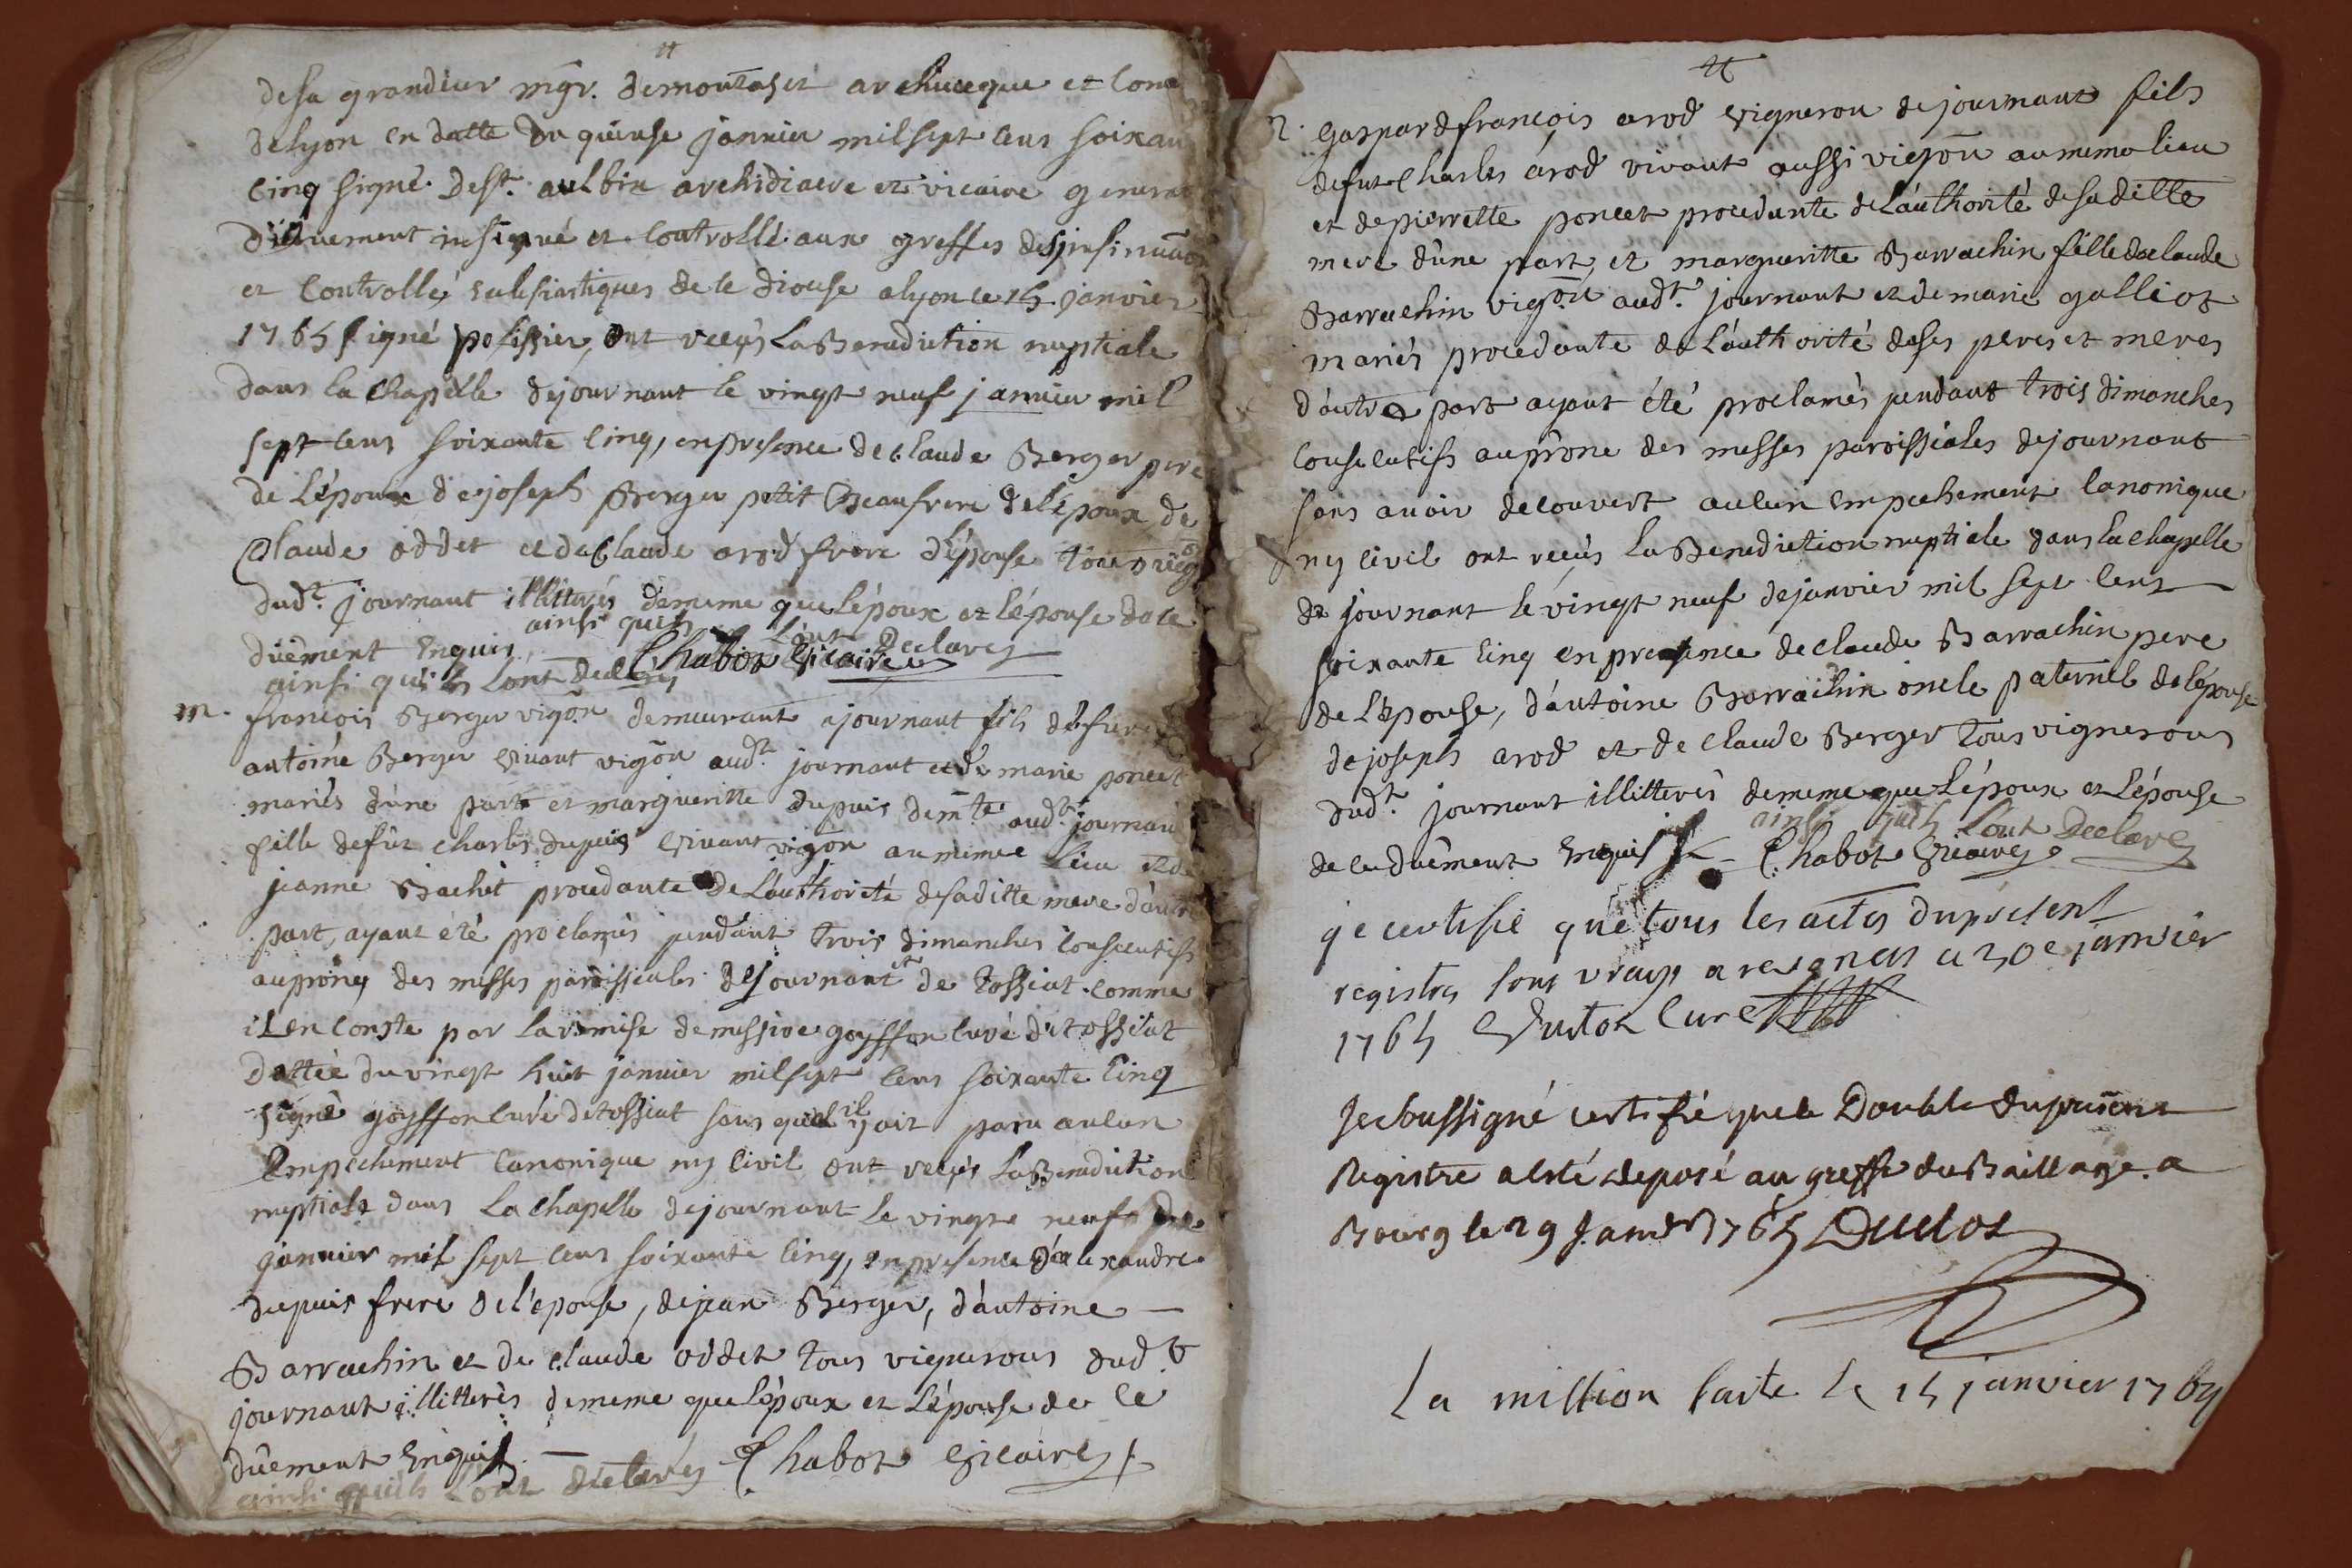 de sa grandeur mgr. de montaset archeveque et Comt
de lyon en datte du quinse janvier mil sept cens soixan
cinq signé De st. aulbin archidiacre et vicaire general
düement insinué et Controllé aux greffes des insinuaõn
et Controlle, eclesiastiques de ce diocese a lyon le 15 janvier
1765 signé pelissier, ont recûs la Benediction nuptiale
dans la chapelle de journant le vingt neuf janvier mil
sept cens soixante cinq, en presence de claude Berger pere
de L'époux de joseph Berger petit Beaufrere de l'époux de
Claude oddet et de Claude arod frere d'épouse tous vig
dud.t journant illitterés de meme que L'époux et L'épouse de ce
ainsi qu'ils L'ont Declarés
düement enquis
ainsi qu'ils L'ont declarés Chabot vicaire
m. françois Berger vigõn demeurant a journant fils de feu
antoine Berger vivant vigõn aud.t journant et de marie poncet
mariés d'une part et margueritte dupuis dem.te aud.t journan
fille de fût charles dupuis vivant vigõn au meme Lieu et de
jeanne Bachet procedante de L'authorité de sa ditte mere d'autre
part, ayant été proclamés pendant trois dimanches Consecutifs
au prône des messes paroissiales de journant et de tossiat comme
il en Conste par la remise de messire goyffon curé de tossiat
Dattée du vingt huit janvier mil sept cens soixante Cinq
signé goyffon curé de tossiat sans qu'il y ait paru aucun
Empechement Canonique ny Civil, ont recûs la Benediction
nuptiale dans La chapelle de journant le vingt neuf de
janvier mil sept cens soixante Cinq, en presence d'alexandre
dupuis frere de l'epouse, de jean Berger, d'antoine
Barrachin et de claude oddet tous vignerons dud.t
journant illitterés de meme que L'époux et L'épouse de ce
dûement Enquis
ainsi qu'ils L'ont declarés Chabot vicaire
gaspard françois arod vigneron de journant fils
de fut Charles arod vivant aussi vigõn au meme lieu
et de pierrette poncet procedante de L'authorité de sa ditte
mere d'une part, et margueritte Barrachin fille de claude
Barrachin vigõn aud.t journant et de marie galliot
mariés procedante de L'authorité de ses peres et meres
d'autre part ayant été proclamés pendant trois dimanches
Consecutifs au prône des messes paroissiales de journant
sans avoir decouvert aucun empechement Canonique
ny civil ont recûs la Benediction nuptiale dans la chapelle
de journant le vingt neuf de janvier mil sept cens
soixante cinq en presence de claude Barrachin pere
de L'épouse, d'antoine Barrachin oncle paternel de l'épouse
de joseph arod et de claude Berger tous vignerons
dud.t journant illitterés de meme que L'époux et L'épouse
ainsi qu'ils L'ont Declarés
de ce dûement enquis Chabot vicaire
je certifie que tous les actes du présent
registre sont vrays a a 30e janvier
1765 curé
Je soussigné certifié que le Double du présent
Registre a été deposé au greffe du Baillage a
Bourg le 29 Janvr 1765 Duclos
La mission faite le 15 janvier 1765